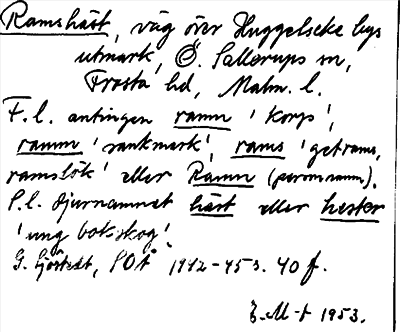 Ramshäst, väg över Huggelseke bys
utmark, Ö. Sallerups sn,
Frosta hd, Malm. l.
F.l. antingen ramn 'korp',
ramm 'sankmark', rams 'getrams,
ramslök' eller Ramn (personnamn).
S.l. djurnamnet häst eller hester
'ung bokskog'.
G. Sjöstedt, SOÅ 1942-453. 40 f.
E. M-t 1953.